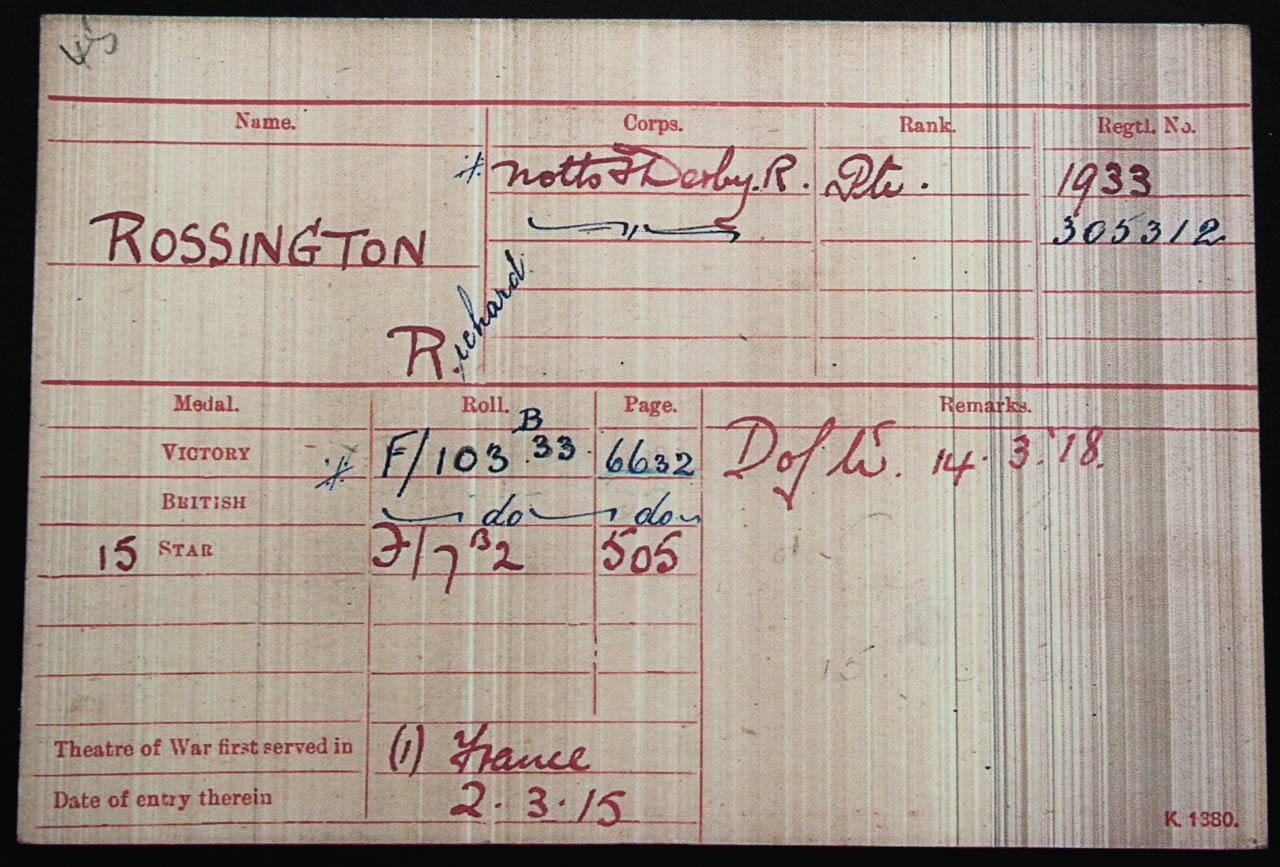 Name. Corps. Rank. Regtl. No.
* Notts & Derby. R. Pte. 1933
ROSSINGTON — " — 305312
Richard
Medal. Roll. Page. Remarks.
VICTORY * F/103 B 33. 6632 D of W. 14.3.'18.
BRITISH — do — do —
15 STAR F/7 B 2 505
Theatre of War first served in (1) France
Date of entry therein 2.3.15
K. 1380.